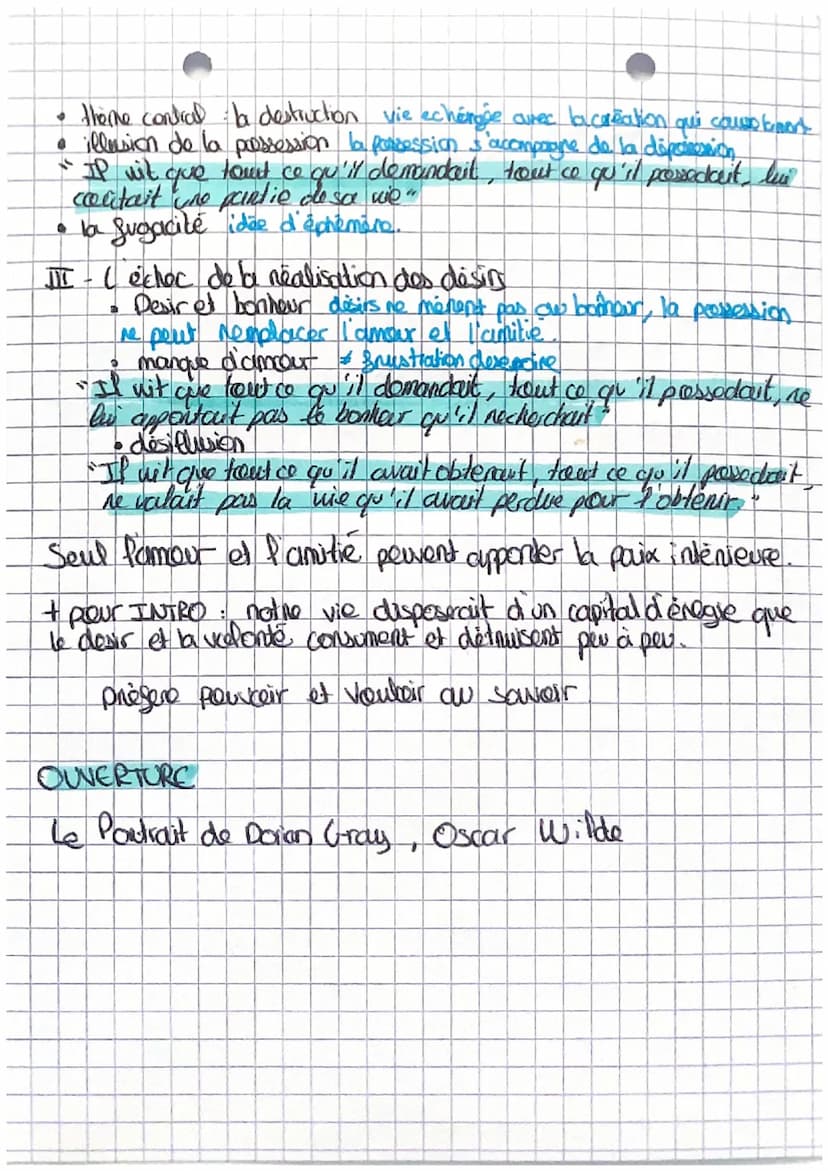 • thème central : la destruction vie echangée avec la création qui cause
• illusion de la possession la possession s'acompagne de la
"Il vit que tout ce qu'il demandait, tout ce qu'il possedait, lui
coûtait une partie de sa vie"
• la fugacité idée d'éphémère.
III - L'échec de la réalisation des désirs
• Desir et bonheur désirs ne mènent pas au bonheur, la possession
ne peut remplacer l'amour et l'amitié.
• manque d'amour ≠ frustration
"Il vit que tout ce qu'il demandait, tout ce qu'il possedait, ne
lui apportait pas le bonheur qu'il recherchait"
• désillusion
"Il vit que tout ce qu'il avait obtenut, tout ce qu'il possedait,
ne valait pas la vie qu'il avait perdue pour l'obtenir."
Seul l'amour et l'amitié peuvent apporter la paix intérieure.
+ pour INTRO : notre vie disposerait d'un capital d'énergie que
le desir et la volonté consument et détruisent peu à peu.
préfère pouvoir et vouloir au savoir
OUVERTURE
Le Portrait de Dorian Gray, Oscar Wilde